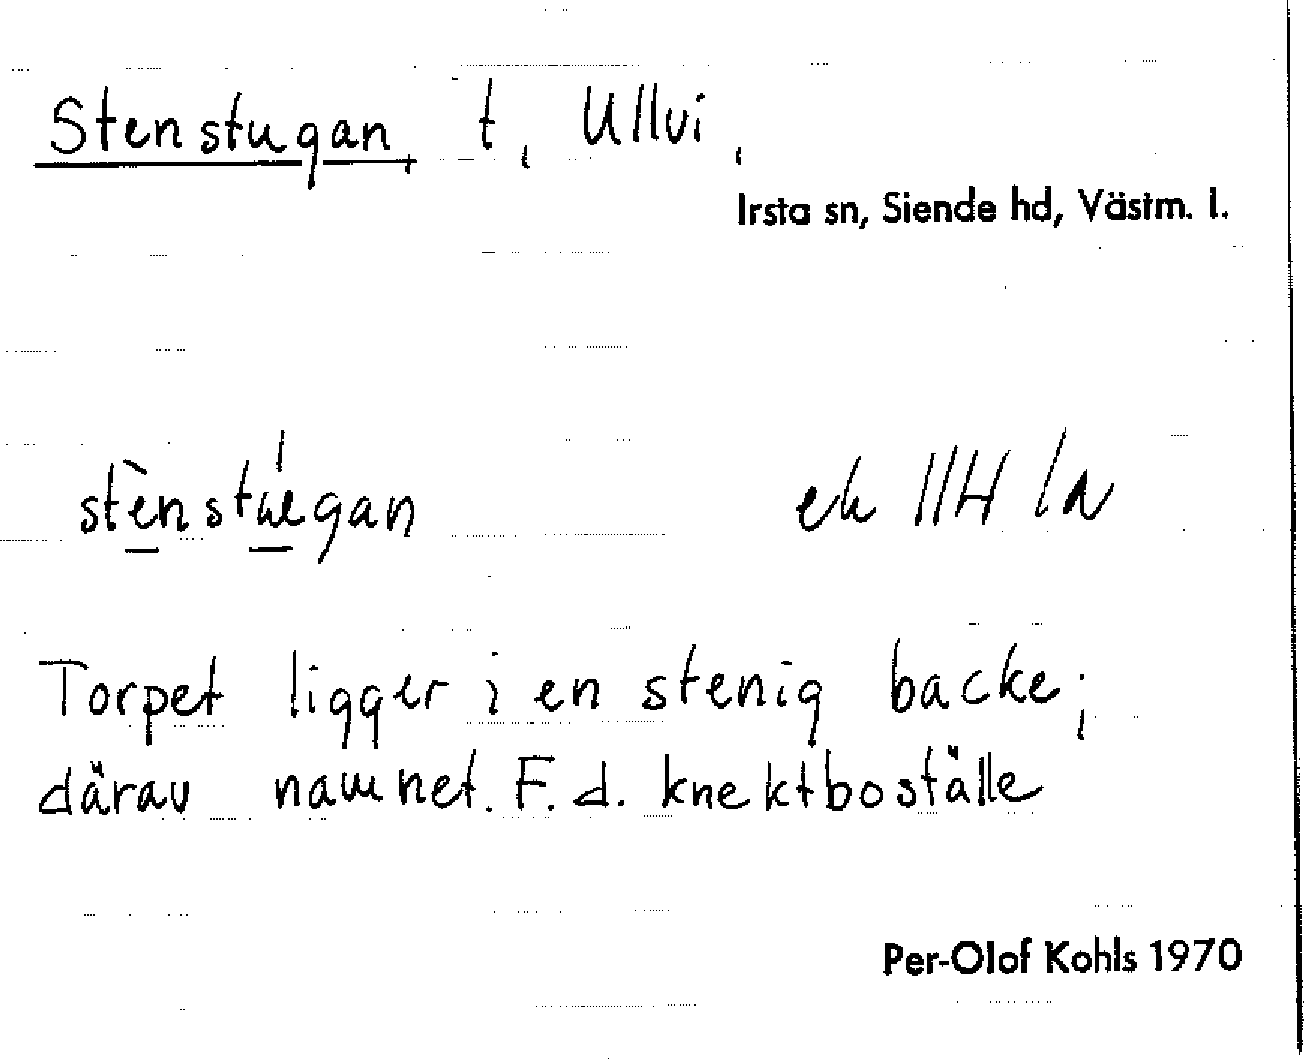 Stenstugan, t, Ullvi,
Irsta sn, Siende hd, Västm. l.
stènstúgan ek 11H
Torpet ligger i en stenig backe;
därav namnet. F. d. knektboställe
Per-Olof Kohls 1970